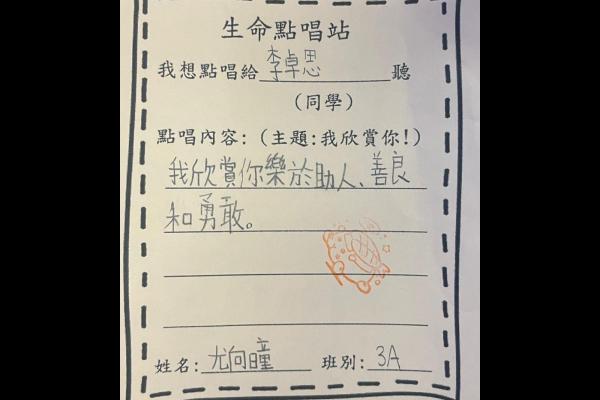 生命點唱站
我想點唱給李卓思聽
(同學)
點唱內容:(主題:我欣賞你!)
我欣賞你樂於助人、善良
和勇敢。
姓名:尤向瞳 班別:3A